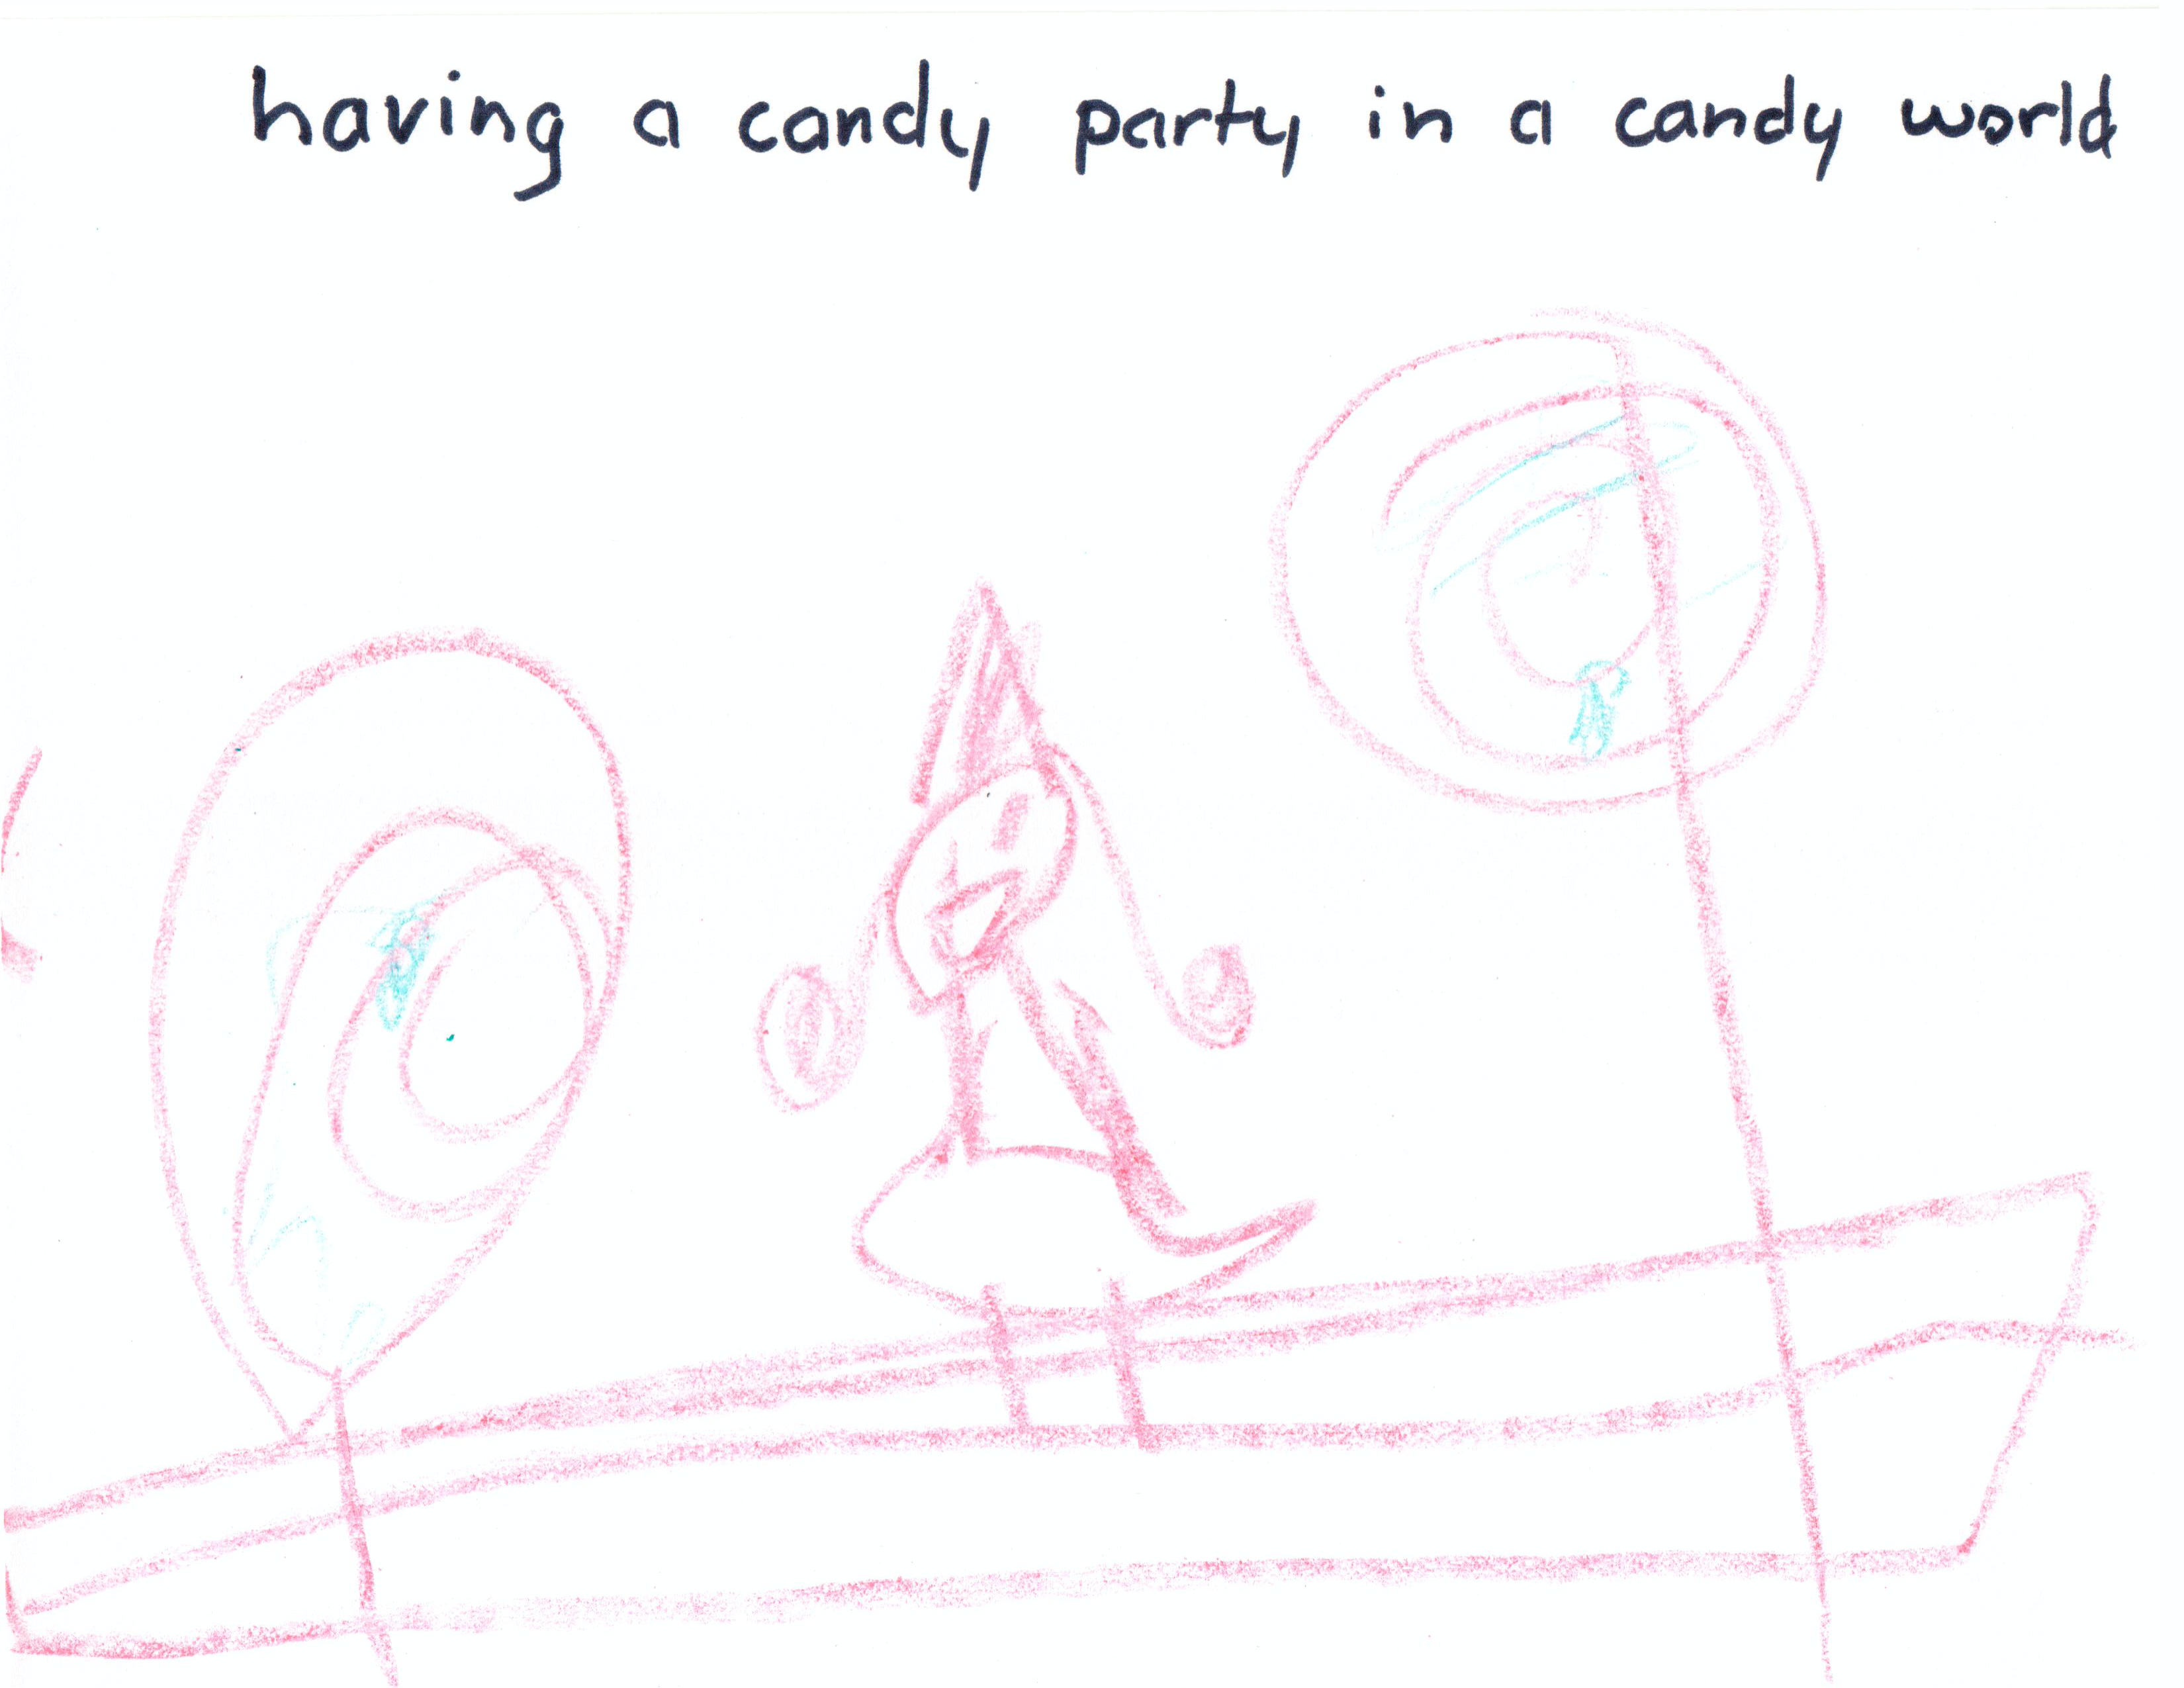 having a candy party in a candy world